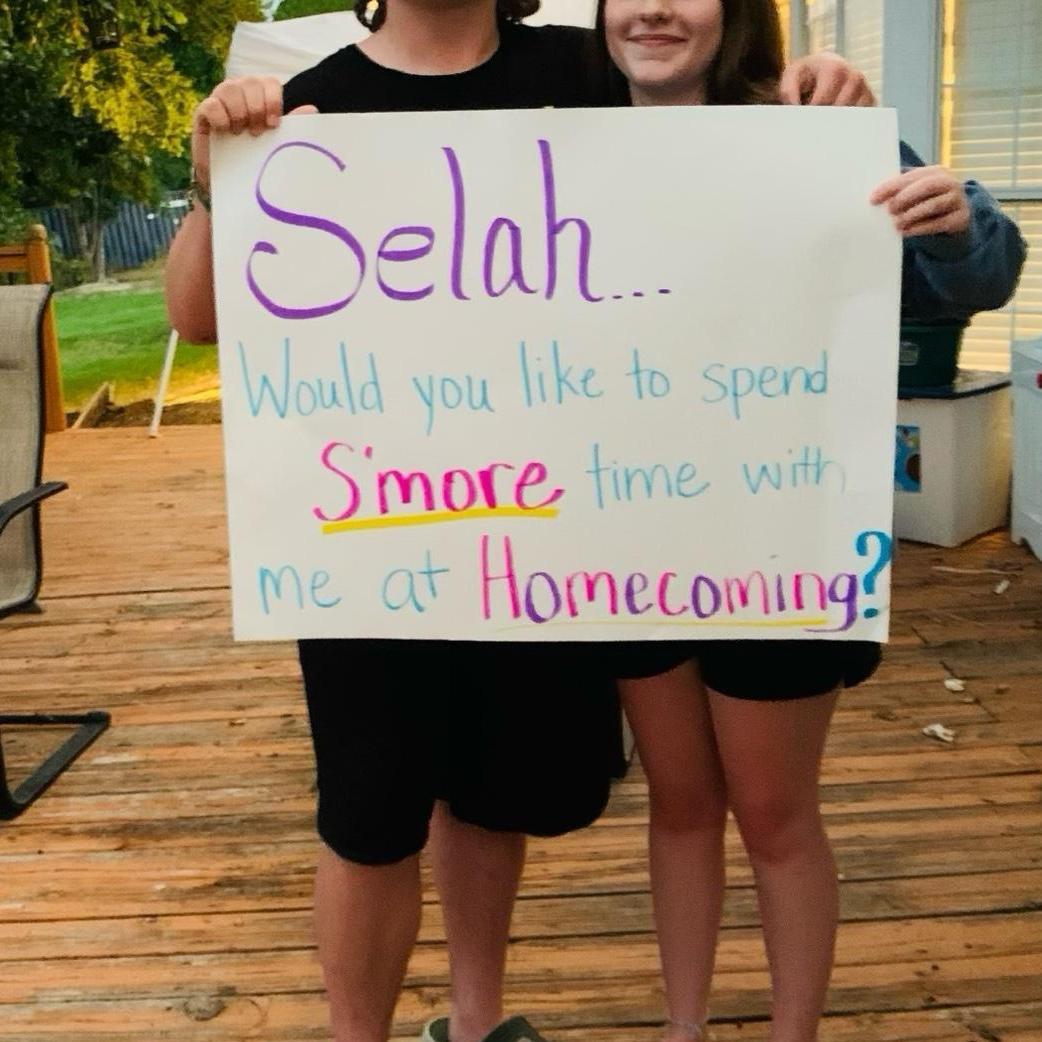 Selah...
Would you like to spend
S'more time with
me at Homecoming?